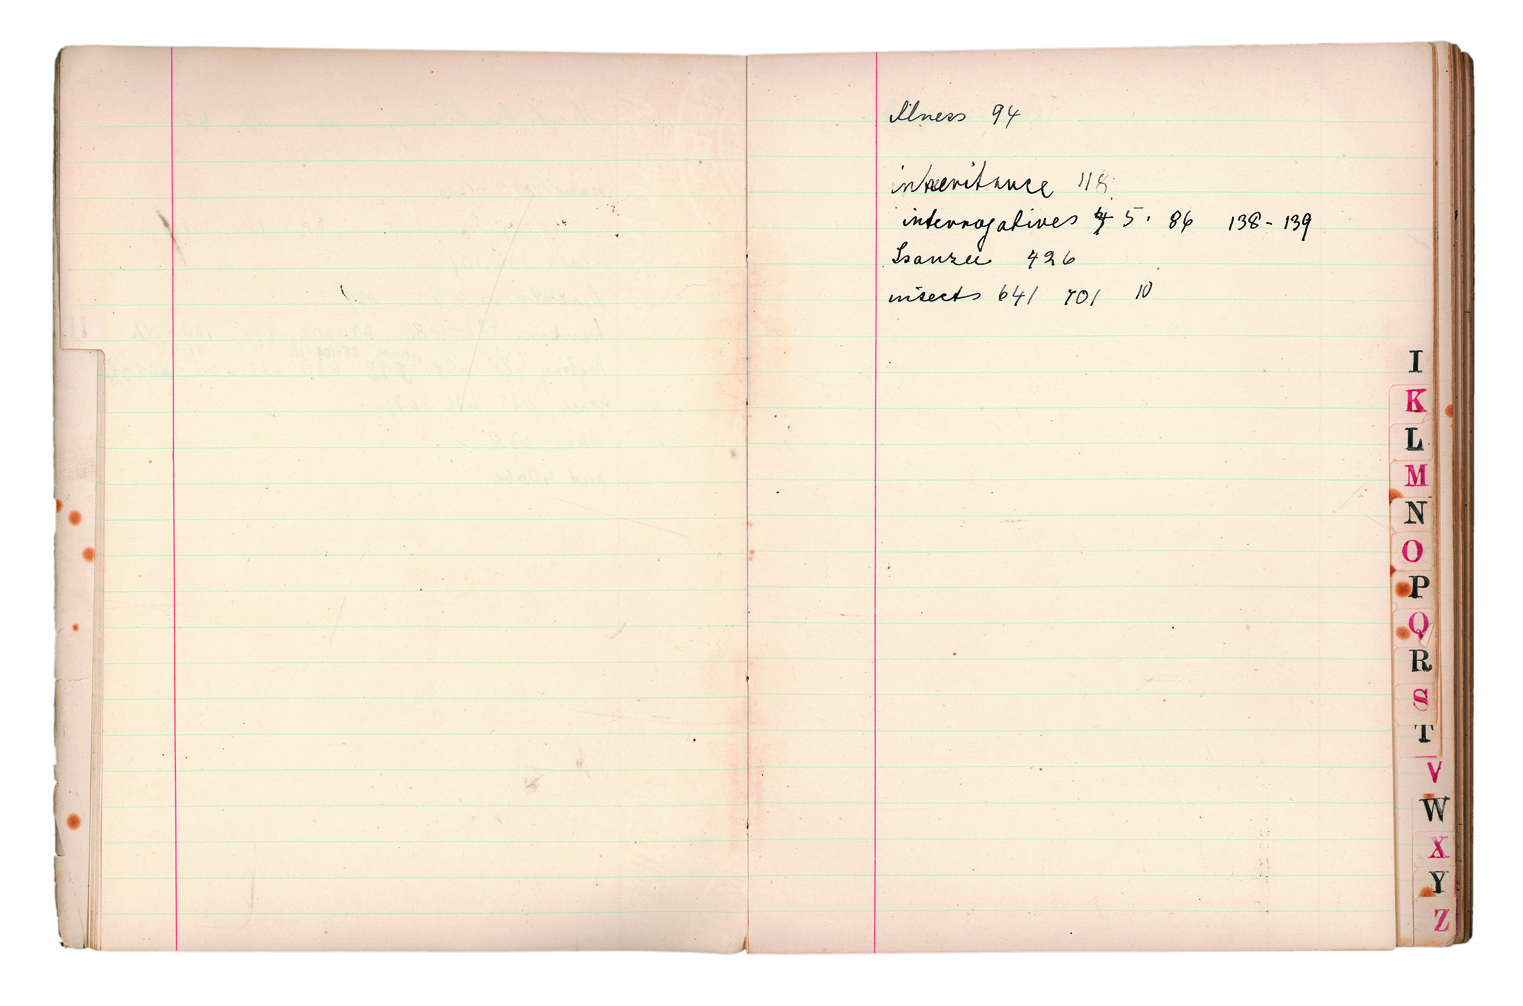 illness 94
inheritance 118
interrogatives 5. 86 138-139
Isanzu 426
insects 641 701 10
I
K
L
M
N
O
P
Q
R
S
T
V
W
X
Y
Z